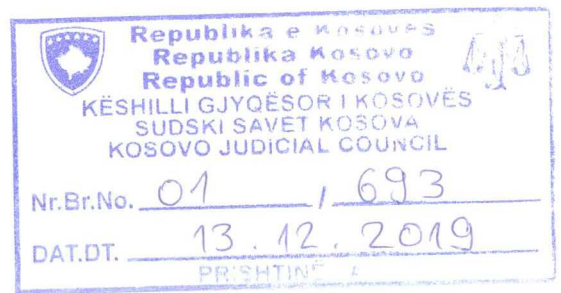 Republika e Kosovës
Republika Kosovo
Republic of Kosovo
KËSHILLI GJYQËSOR I KOSOVËS
SUDSKI SAVET KOSOVA
KOSOVO JUDICIAL COUNCIL
Nr.Br.No. 01 / 693
DAT.DT. 13.12.2019
PRISHTINË